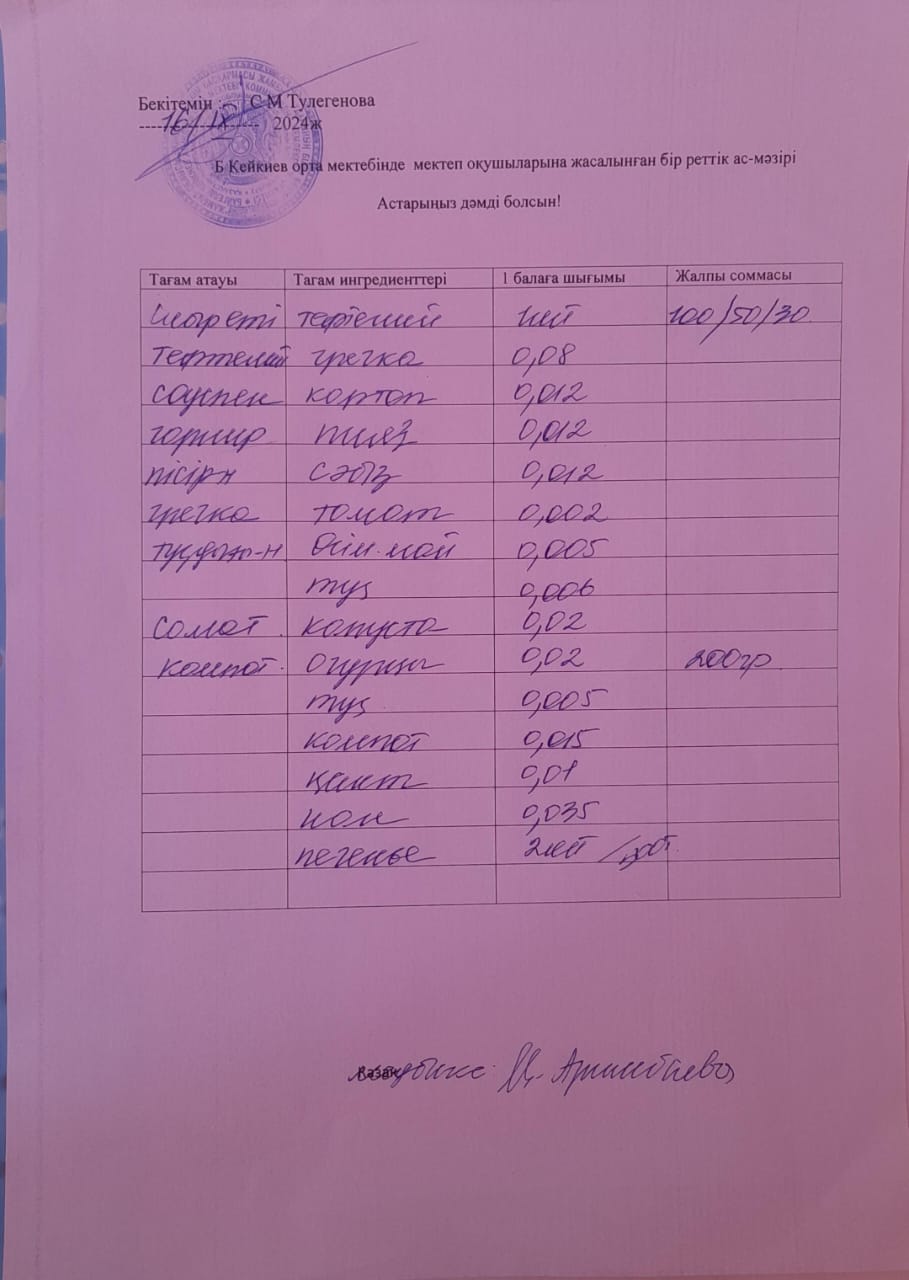 Бекітемін : С М Тулегенова
16/IX 2024ж
Б Кейкиев орта мектебінде мектеп оқушыларына жасалынған бір реттік ас-мәзірі
Астарыңыз дәмді болсын!
Тағам атауы Тағам ингредиенттері 1 балаға шығымы Жалпы соммасы
тефтелий 100/50/30
Тефтелий гречка 0,08
соуспен картоп 0,012
гарнир пияз 0,012
сәбіз 0,012
гречка томат 0,002
өсім.май 0,005
тұз 0,006
салат капуста 0,02
компот. огурцы 0,02 200гр
тұз 0,005
компот 0,015
қант 0,01
нан 0,035
печенье